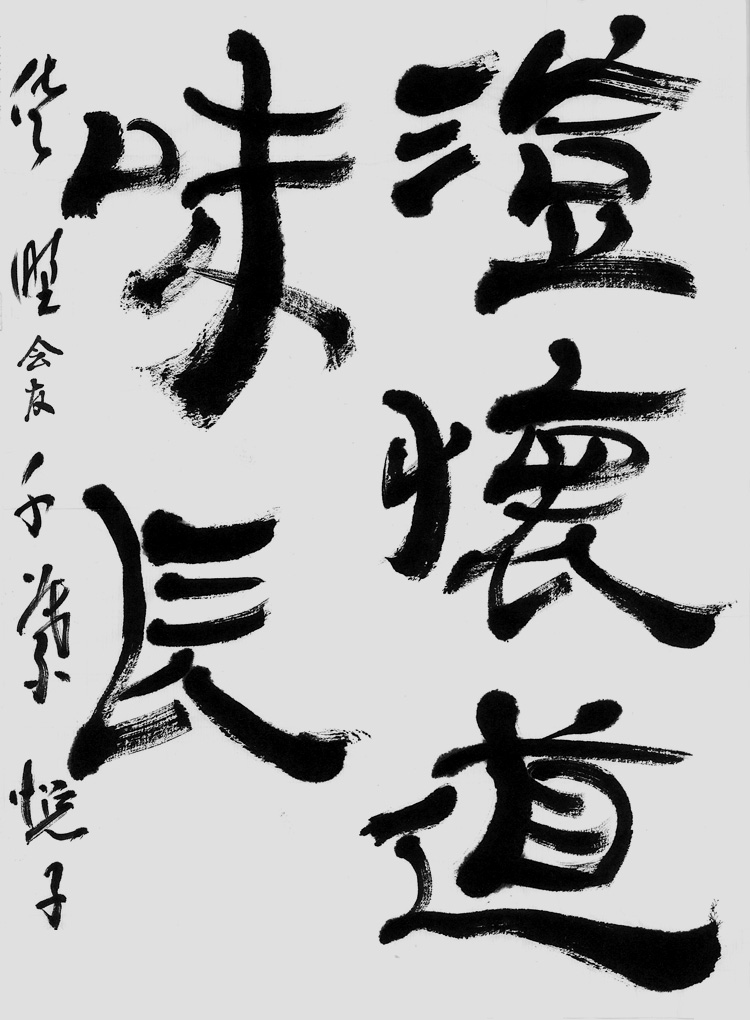 澄懐道
味長
会友 千葉悦子